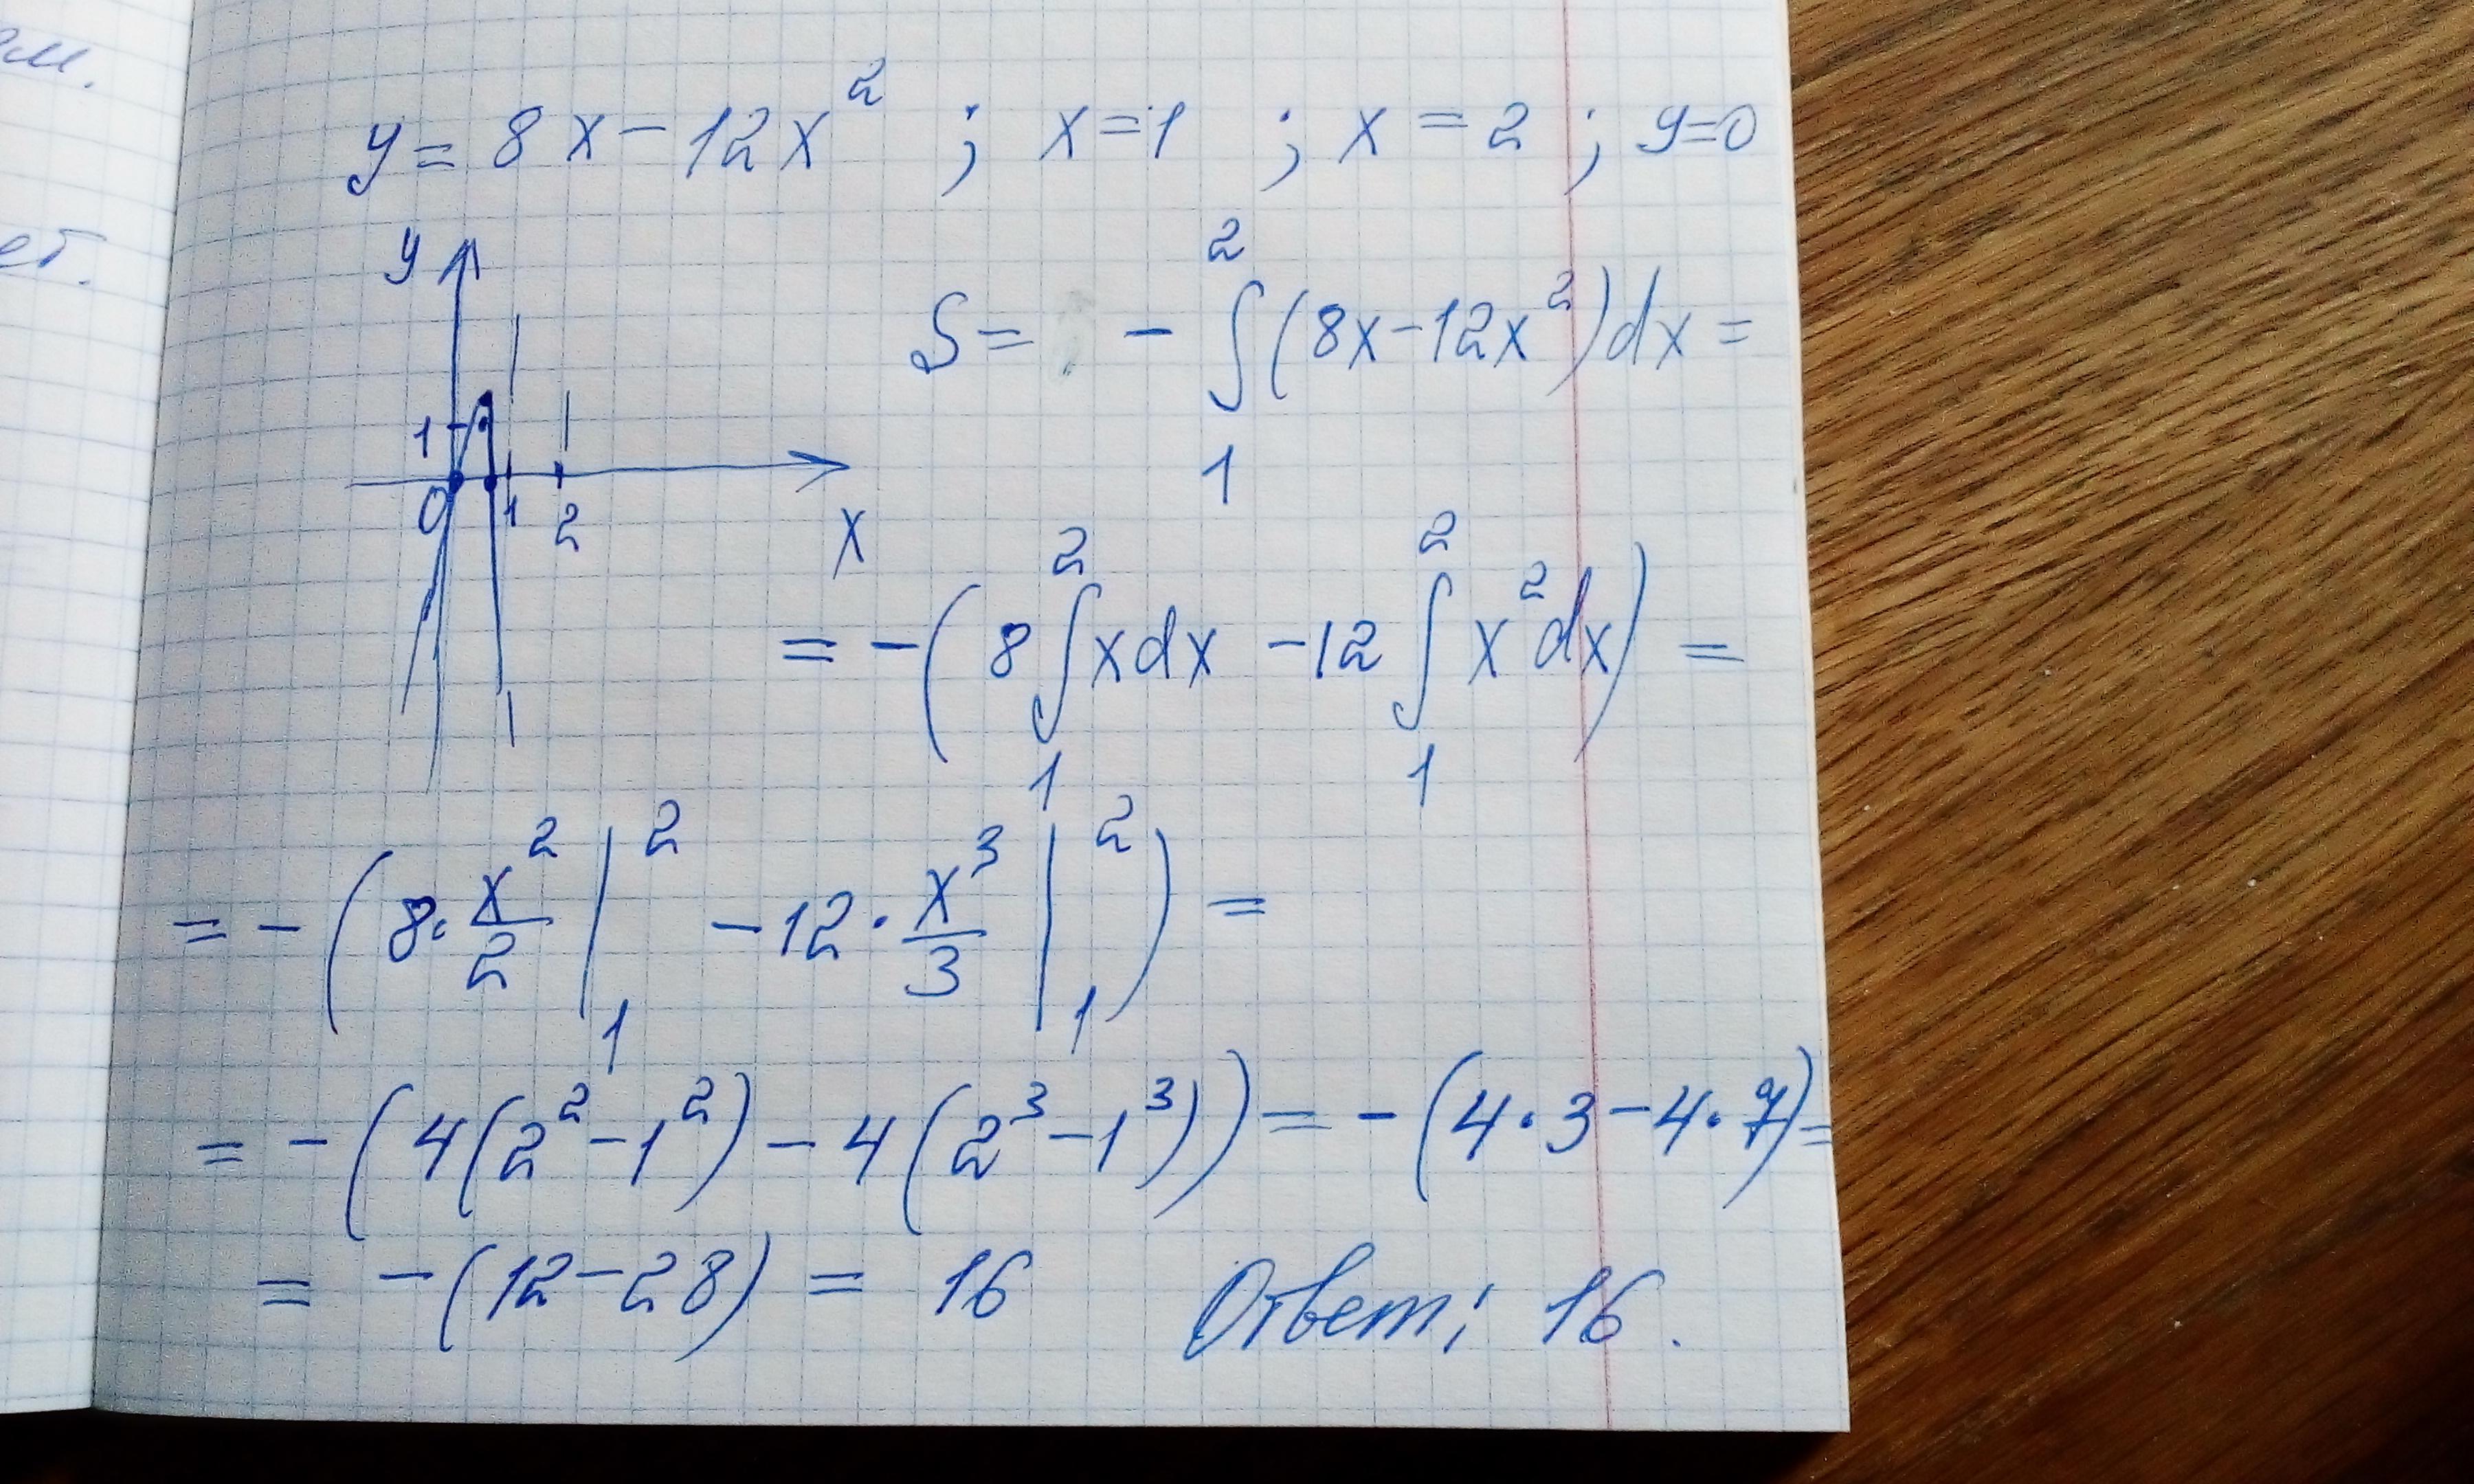 ет.
y = 8x - 12x² ; x = 1 ; x = 2 ; y = 0
y
1
0 1 2
x
S = - ∫₁² (8x - 12x²)dx =
= - (8 ∫₁² xdx - 12 ∫₁² x²dx) =
= - (8 · x²/2 |₁² - 12 · x³/3 |₁²) =
= - (4(2² - 1²) - 4(2³ - 1³)) = - (4 · 3 - 4 · 7) =
= - (12 - 28) = 16 Ответ: 16.